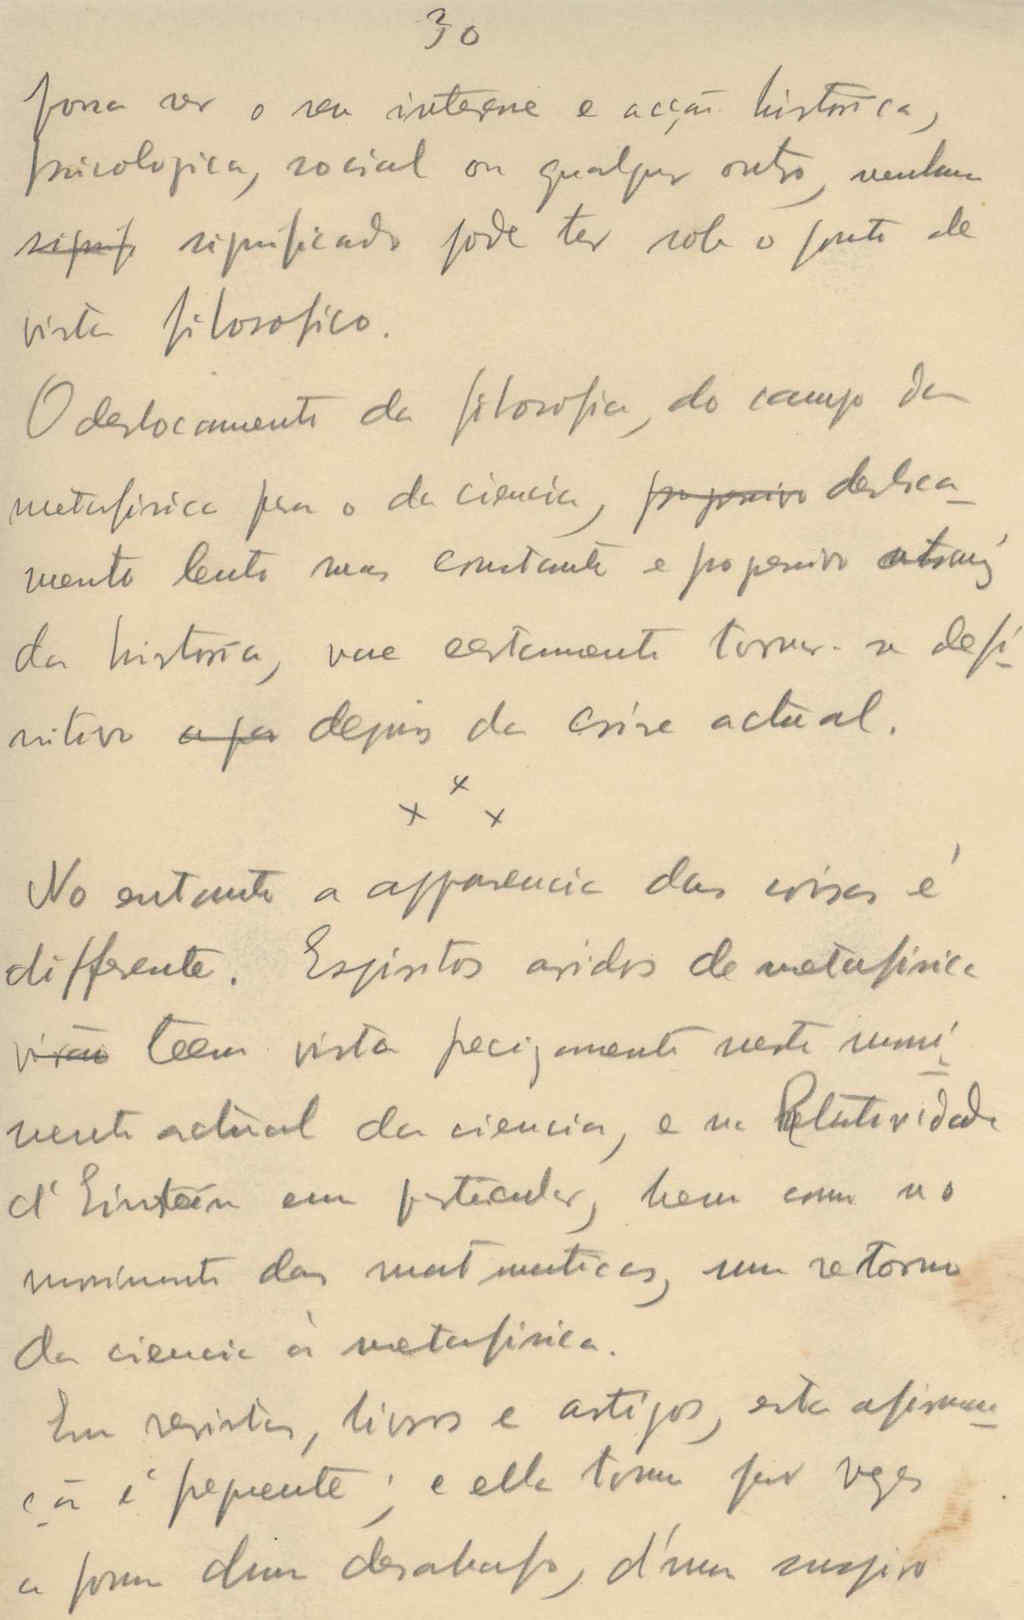 30
possa ser o seu interesse e acção histórica,
psicologica, social ou qualquer outro, nenhum
signif. significado pode ter sob o ponto de
vista filosofico.
O deslocamento da filosofia, do campo da
metafisica para o da ciencia, progressivo desloca-
mento lento mas constante e progressivo atravez
da historia, vae certamente tornar-se defi-
nitivo depois da crise actual.
x x x
No entanto a apparencia das coisas é
differente. Espiritos avidos de metafisica
virão teem visto precizamente neste movi-
mento actual da ciencia, e na Relatividade
d'Einstein em particular, bem como no
movimento das matematicas, um retorno
da ciencia à metafisica.
Em revistas, livros e artigos, esta afirma-
ção é frequente; e ella toma por vezes
a forma dum desabafo, d'um suspiro